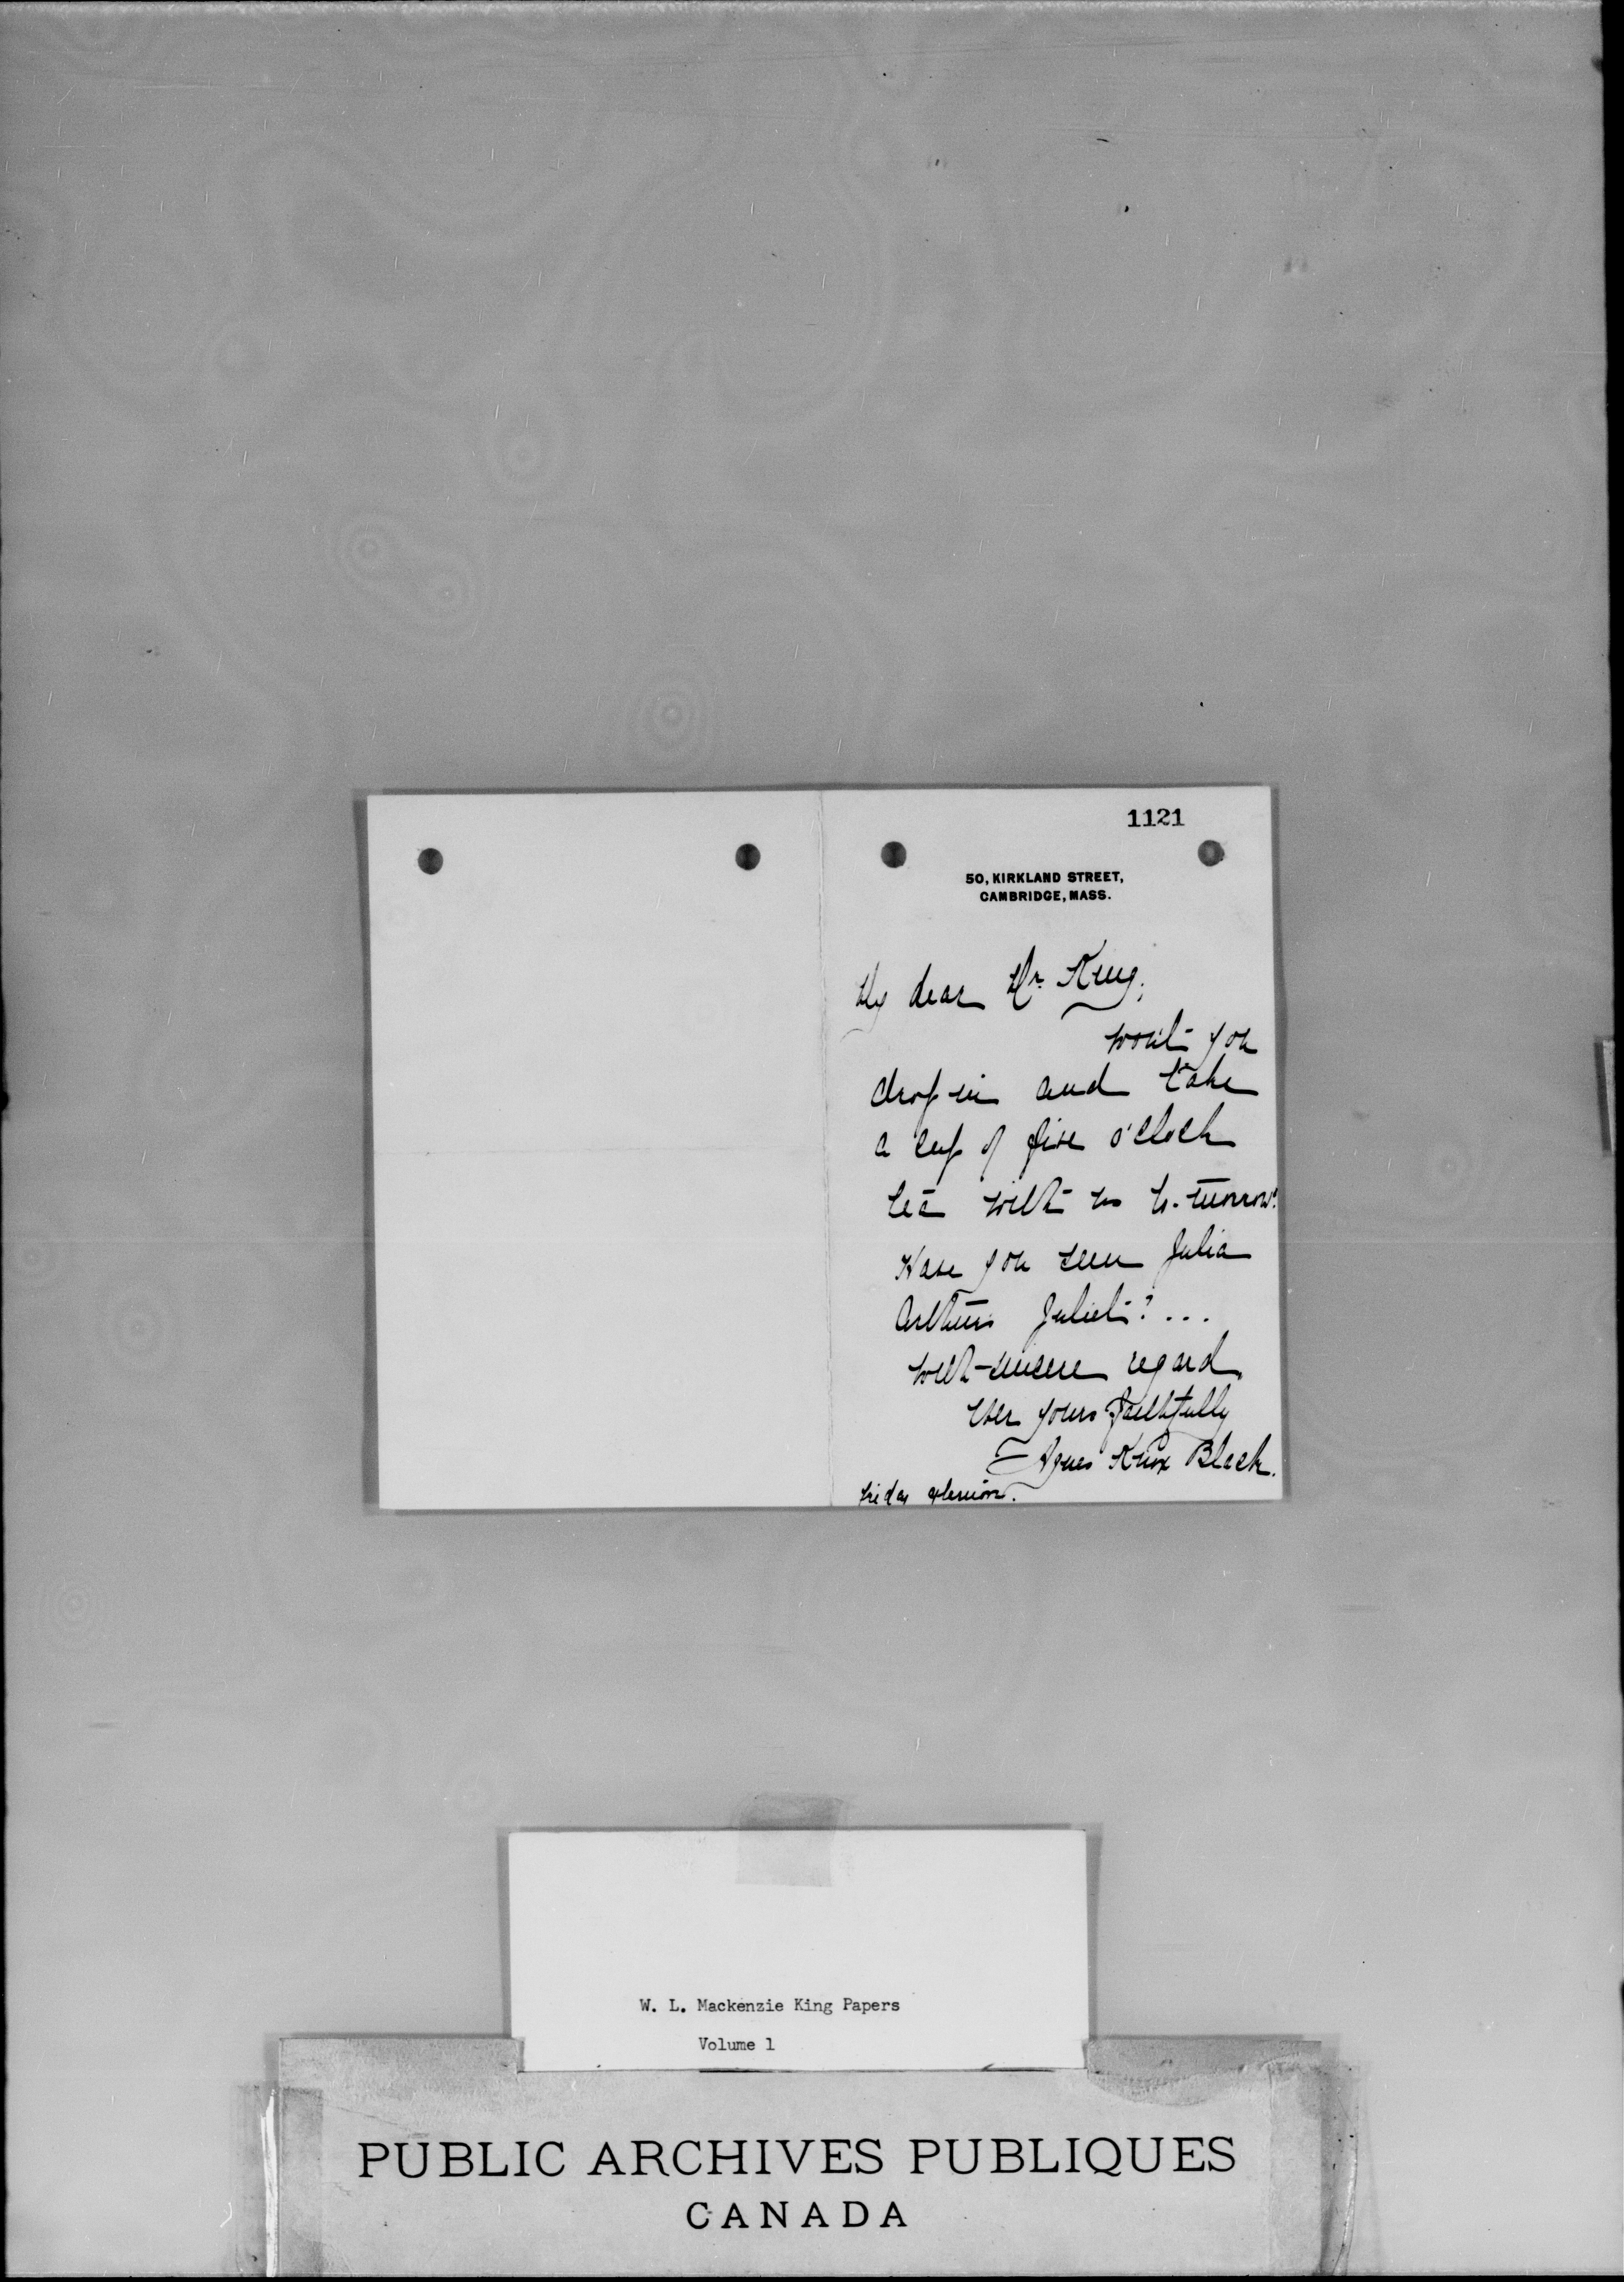 1121
50, KIRKLAND STREET,
CAMBRIDGE, MASS.
My dear Mr. King,
won't you
drop in and take
a cup of five o'clock
tea with us to-morrow?
Have you seen Julia
Arthur's Juliet? ...
With sincere regard
Ever yours faithfully
Agnes Knox Black.
Friday afternoon.
W. L. Mackenzie King Papers
Volume 1
PUBLIC ARCHIVES PUBLIQUES
CANADA